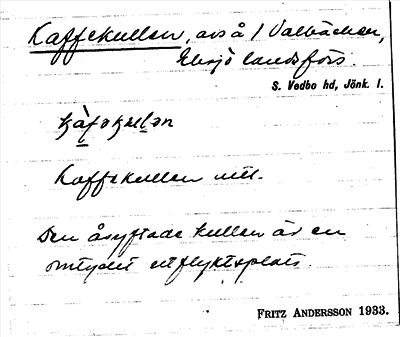 Kaffekullen, avs å / Valbäcken,
Eksjö landsförs.
S. Vedbo hd, Jönk. l.
Kaffekullen
Den åsyftade kullen är en
omtyckt utflyktsplats.
FRITZ ANDERSSON 1933.